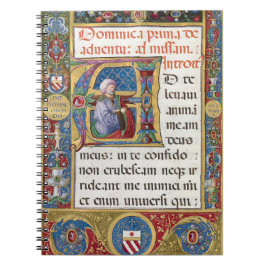 Dominica prima de
adventu: ad missam.
Introit
D te
levavi
animã
meam
deus
meus: in te confido
non erubescam neq; ir
rideant me inimici mei
et enim universi qui: